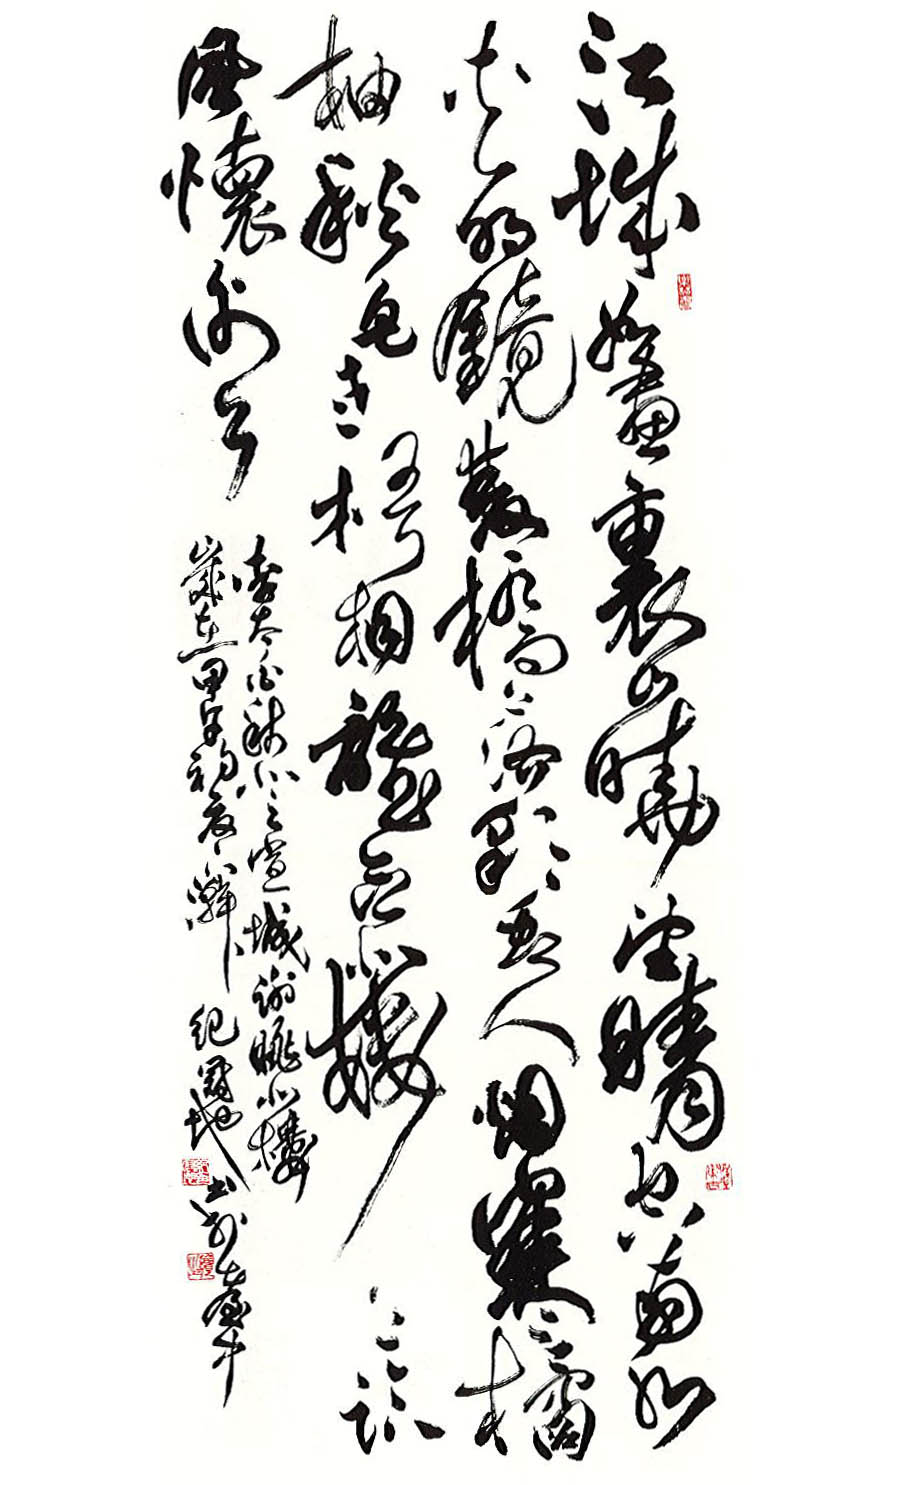 江城如畫裏山曉望晴空兩水
夾明鏡雙橋落彩虹人烟寒橘
柚秋色老梧桐誰念北樓上臨
風懷謝公
李太白秋登宣城謝眺北樓
歲在甲午初夏 紀國地書